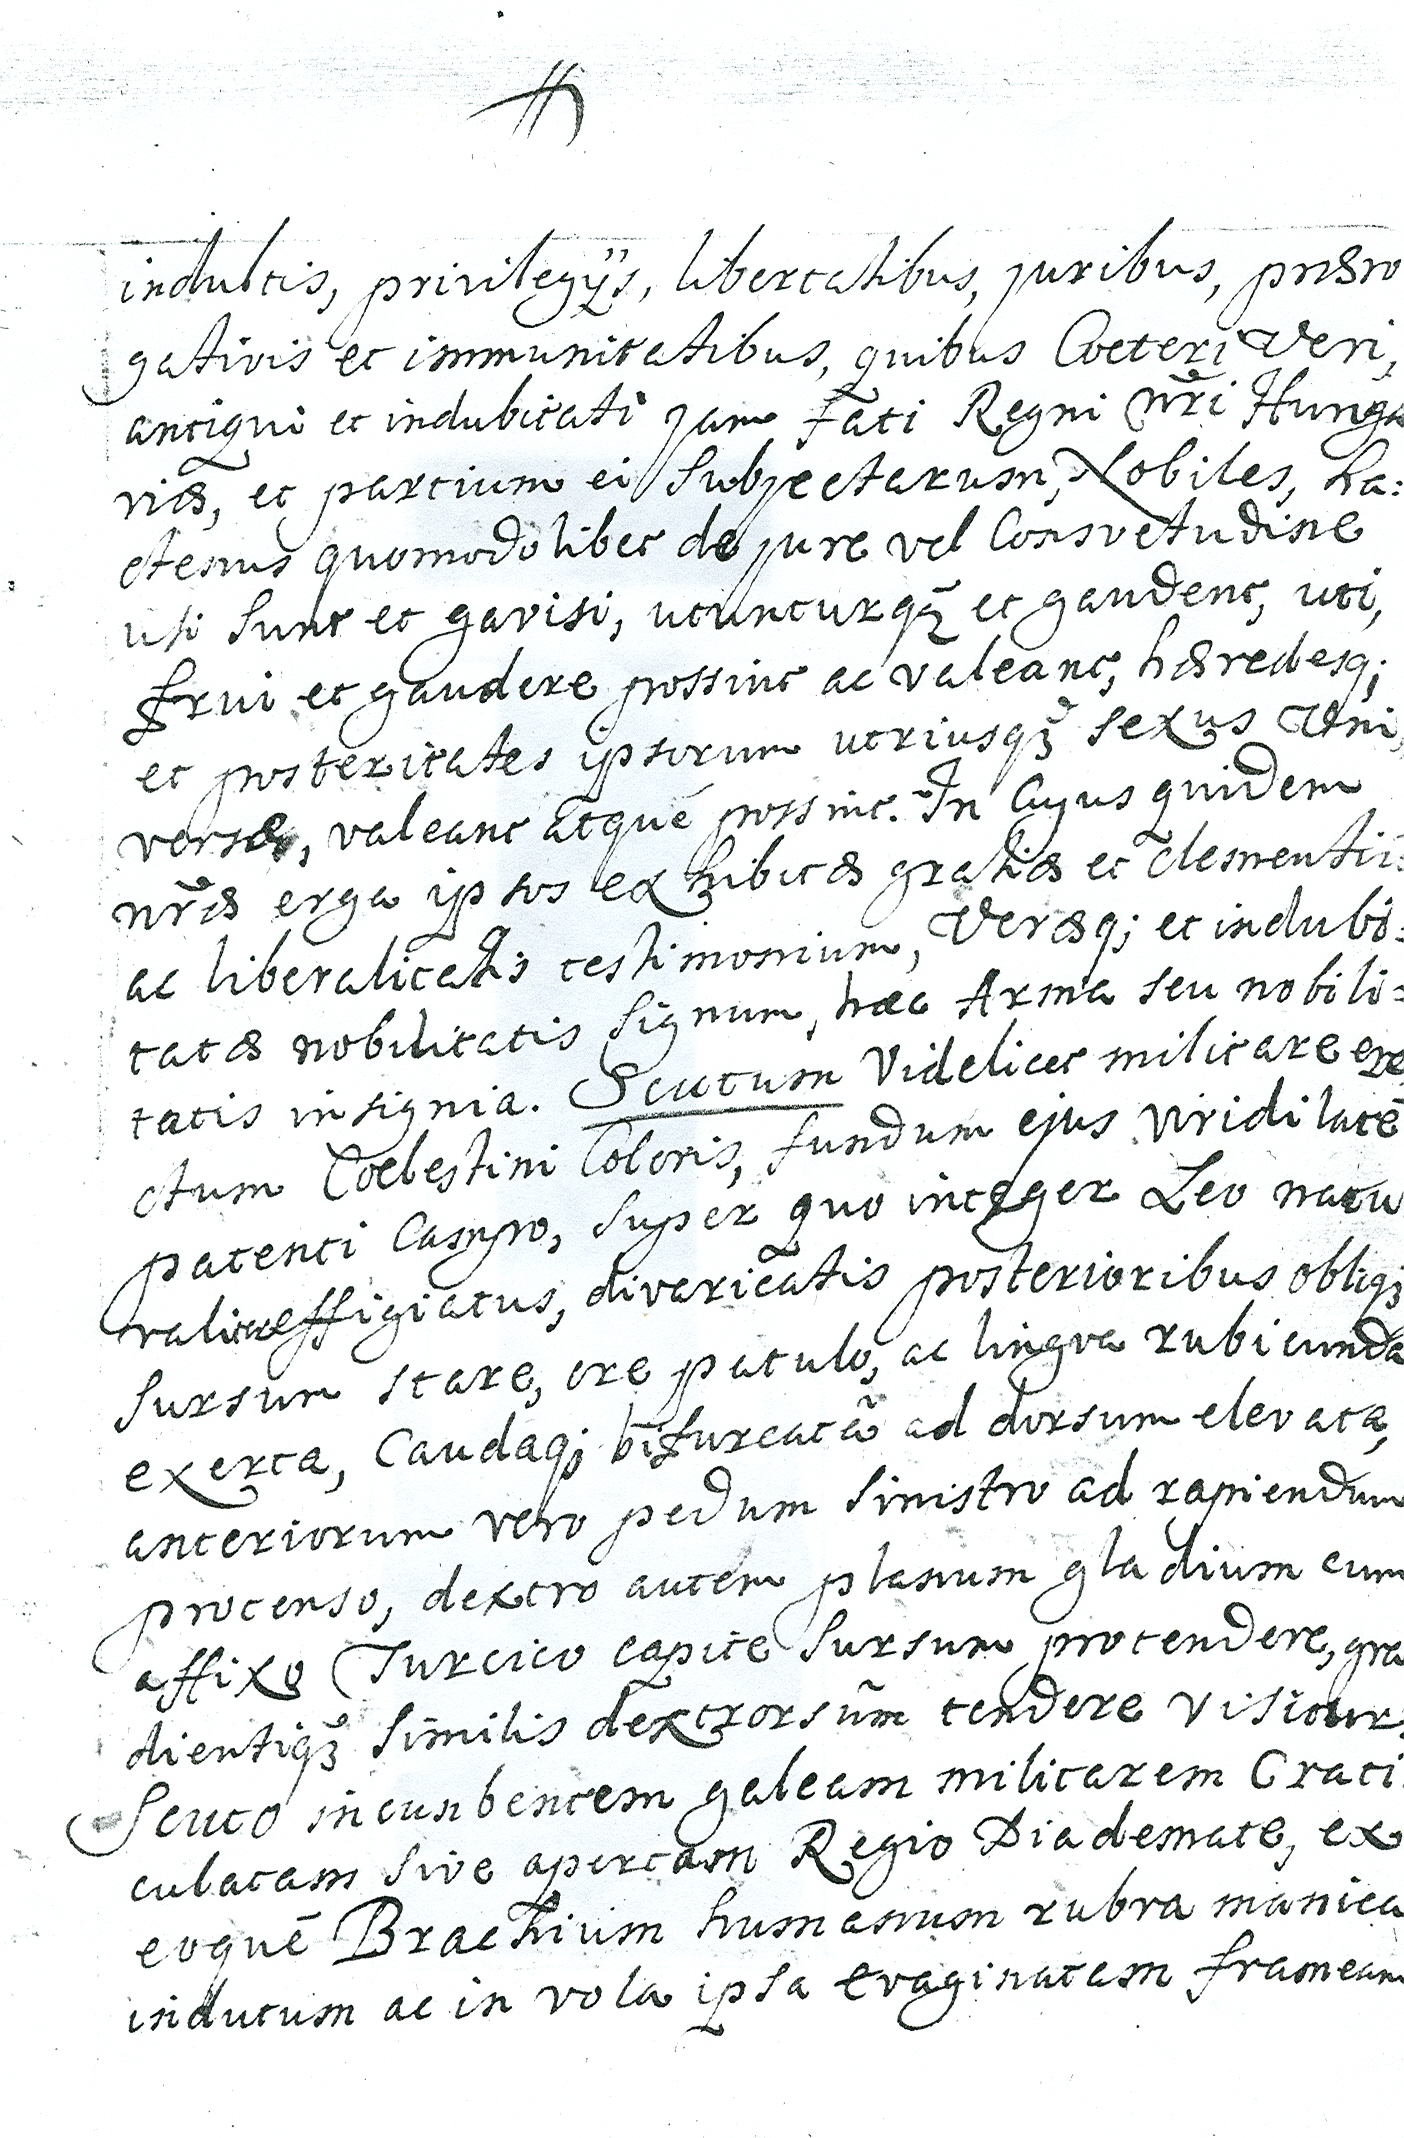 indultis, privilegÿs, libertatibus, juribus, præro
gativis et immunitatibus, quibus Cœteri Veri,
antiqui et indubitati jam fati Regni nr̃i Hunga
riæ, et partium ei Subjectarum, Nobiles, ha:
ctenus quomodolibet de jure vel Consvetudine
usi Sunt et gavisi, utunturqꝫ et gaudent, uti,
frui et gaudere possint ac valeant, hæredesq;
et posteritates ipsorum utriusqꝫ sexus Uni,
versæ, valeant atque possint. In Cujus quidem
nr̃æ erga ipsos exhibitæ gratiæ et clementii
ac liberalitatis testimonium, Veræq; et indubi:
tatæ nobilitatis Signum, hæc Arma seu nobili:
tatis insignia. Scutum Videlicet militare ere
ctum Cœlestini Coloris, fundum ejus viridi late
patenti Campo, Super quo integer Leo natu
raliter effigiatus, divaricatis posterioribus obliqꝫ
Sursum stare, ore patulo, ac lingva rubicunda
exerta, Caudaq; bifurcatã ad dorsum elevata,
anteriorum vero pedum Sinistro ad rapiendum
protenso, dextro autem planum gladium cum
affixo Turcico capite Sursum protendere, gra
dientiqꝫ Similis dextrorsum tendere visitur,
Scuto incunbentem galeam militarem Crati
culatam Sive apertam Regio Diademate, ex
eoque Brachium humanum rubra manica
indutum ac in vola ipsa evaginatam frameam